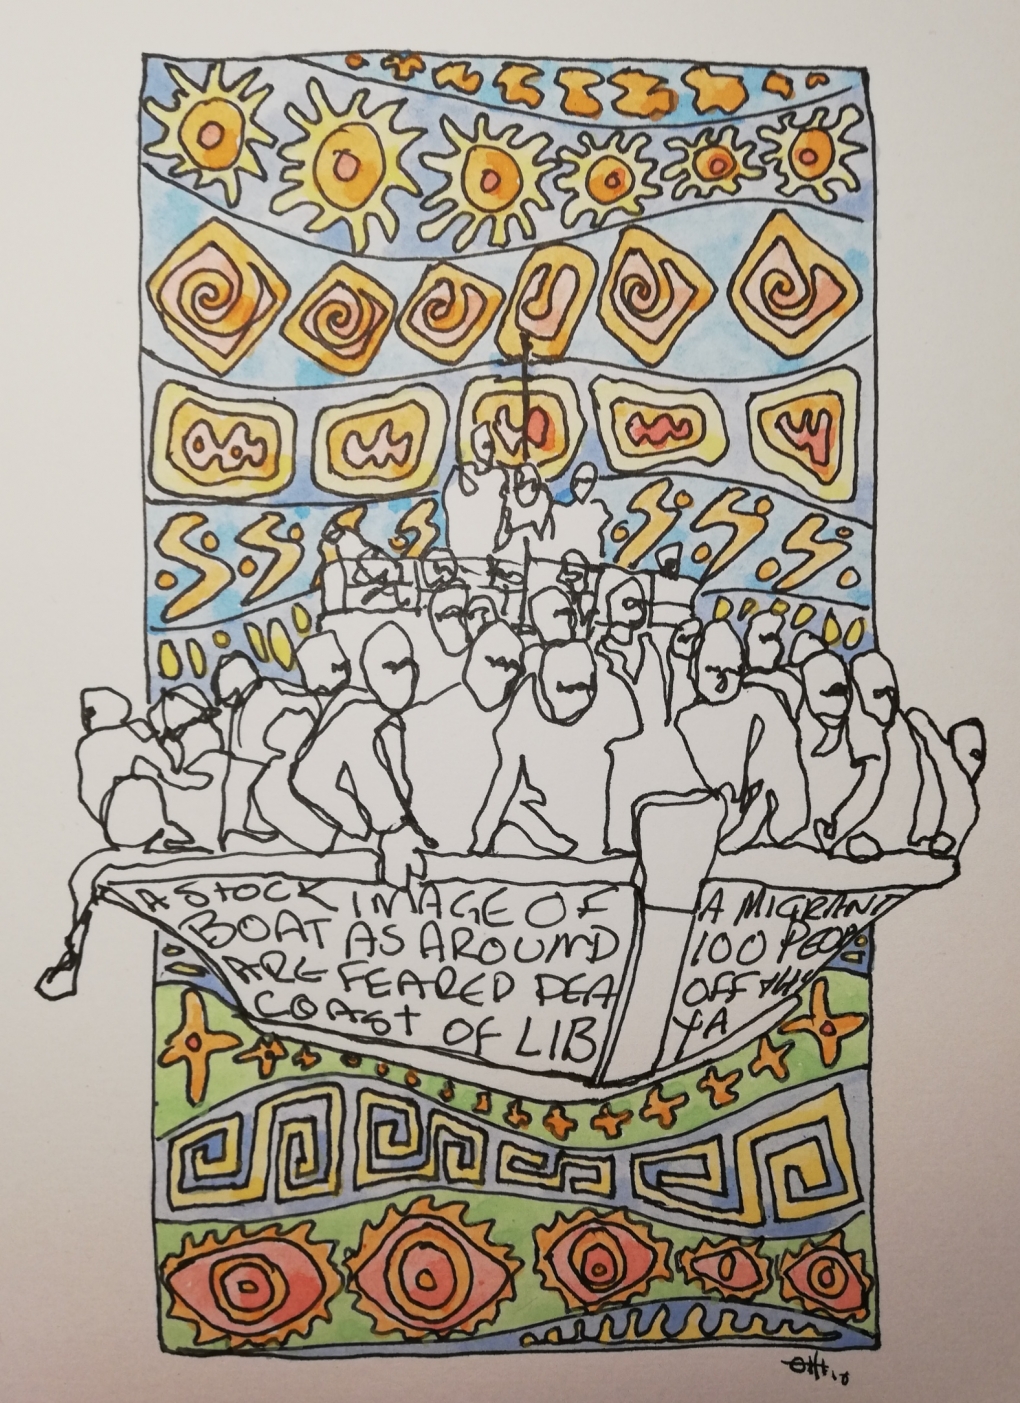 A STOCK IMAGE OF A MIGRANT
BOAT AS AROUND 100 PEOPLE
ARE FEARED DEA OFF THE
COAST OF LIB YA